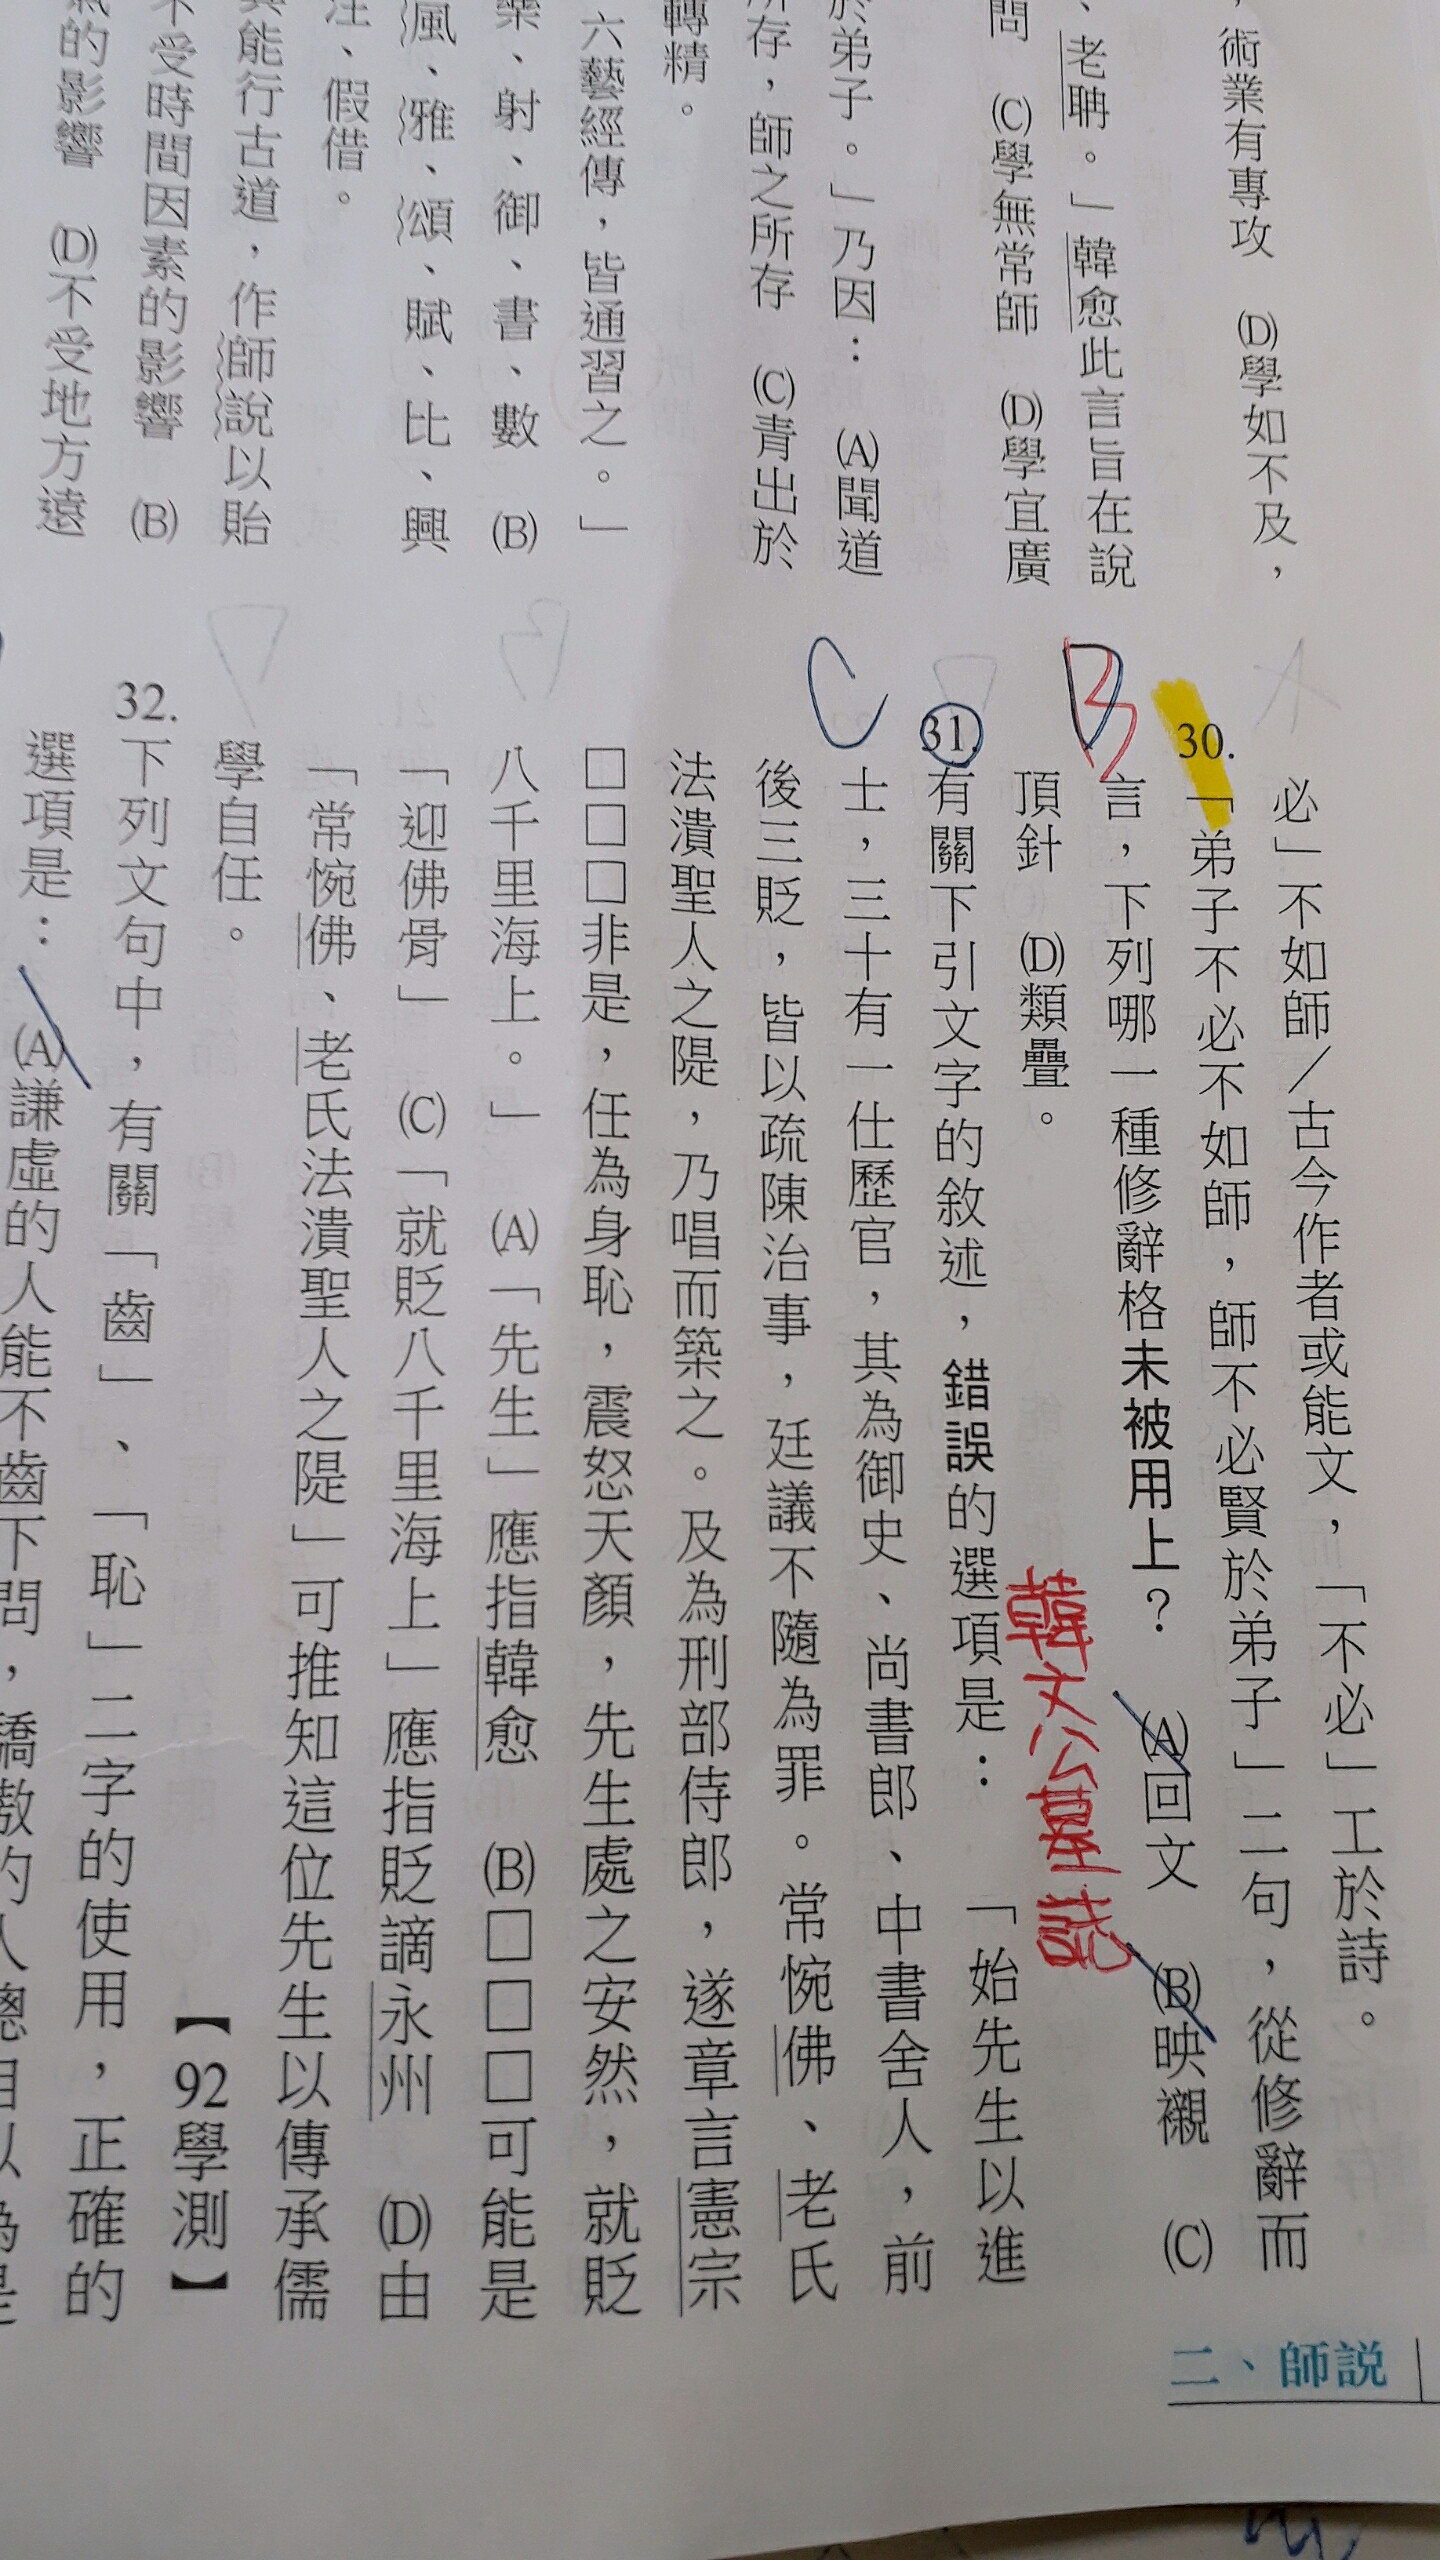 ，術業有專攻　(D)學如不及，
、老聃。」韓愈此言旨在說
問　(C)學無常師　(D)學宜廣
於弟子。」乃因：　(A)聞道
所存，師之所存　(C)青出於
轉精。
六藝經傳，皆通習之。」
樂、射、御、書、數　(B)
風、雅、頌、賦、比、興
注、假借。
其能行古道，作師說以貽
不受時間因素的影響　(B)
氣的影響　(D)不受地方遠
必」不如師／古今作者或能文，「不必」工於詩。
30.「弟子不必不如師，師不必賢於弟子」二句，從修辭而
B
言，下列哪一種修辭格未被用上？　(A)回文　(B)映襯　(C)
頂針　(D)類疊。
韓文公墓誌
31.有關下引文字的敘述，錯誤的選項是：　「始先生以進
C
士，三十有一仕歷官，其為御史、尚書郎、中書舍人，前
後三貶，皆以疏陳治事，廷議不隨為罪。常惋佛、老氏
法潰聖人之隄，乃唱而築之。及為刑部侍郎，遂章言憲宗
□□□非是，任為身恥，震怒天顏，先生處之安然，就貶
八千里海上。」　(A)「先生」應指韓愈　(B)□□□可能是
「迎佛骨」　(C)「就貶八千里海上」應指貶謫永州　(D)由
「常惋佛、老氏法潰聖人之隄」可推知這位先生以傳承儒
學自任。　【92學測】
32.下列文句中，有關「齒」、「恥」二字的使用，正確的
選項是：　(A)謙虛的人能不齒下問，驕傲的人總自以為是
二、師說